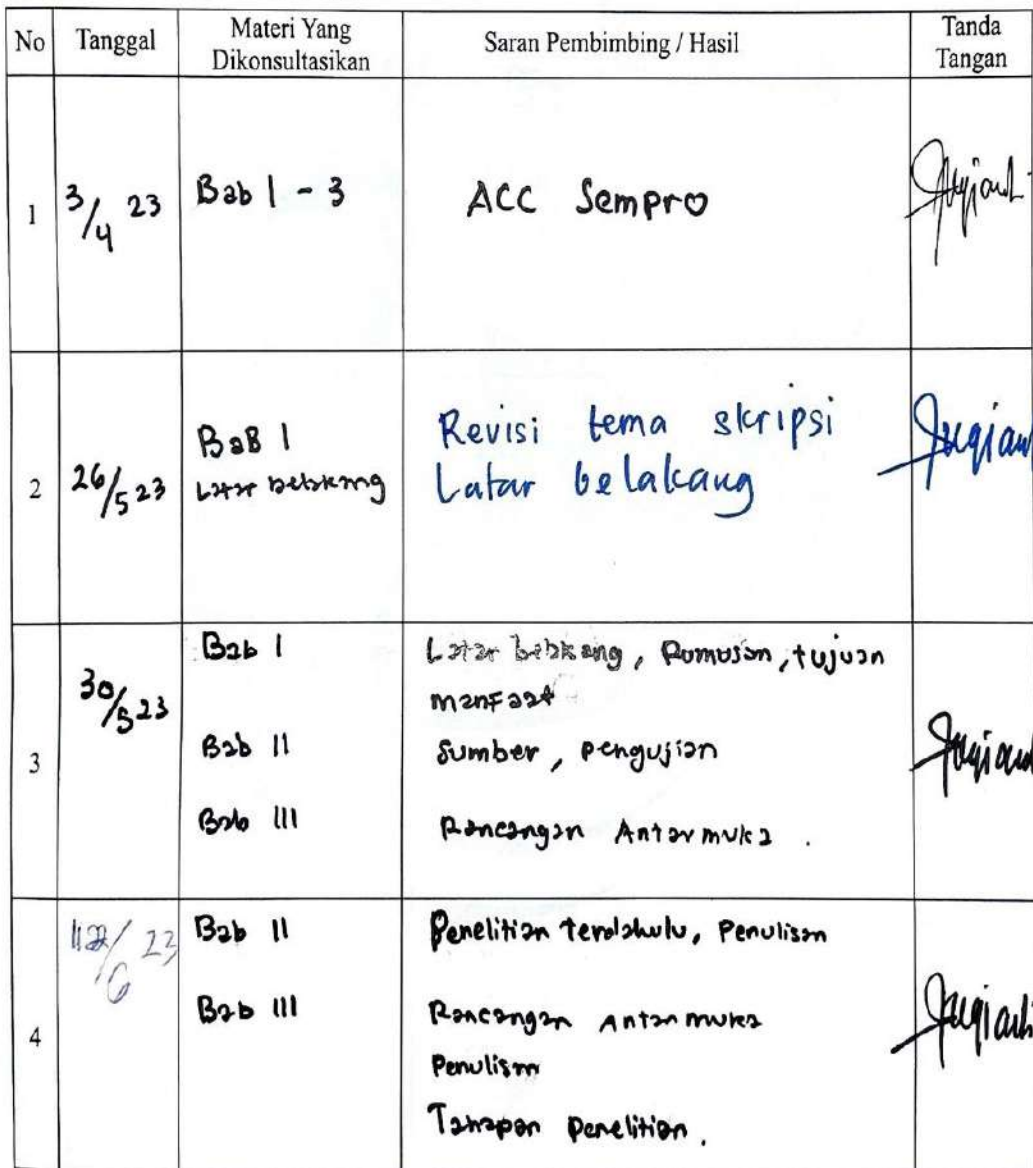 No Tanggal Materi Yang Dikonsultasikan Saran Pembimbing / Hasil Tanda Tangan
1 3/4 23 Bab 1 - 3 ACC Sempro
2 26/5 23 BaB 1 Revisi tema skripsi
Latar belakang Latar belakang
3 30/5 23 Bab I Latar belakang, Rumusan, tujuan
manfaat
Bab II Sumber, pengujian
Bab III Rancangan Antarmuka .
4 /6 23 Bab II Penelitian terdahulu, Penulisan
Bab III Rancangan Antarmuka
Penulisan
Tahapan penelitian.